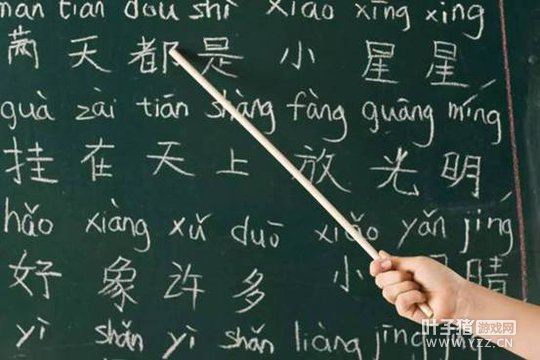 mǎn tiān dōu shì xiǎo xīng xīng
满 天 都 是 小 星 星
guà zài tiān shàng fàng guāng míng
挂 在 天 上 放 光 明
hǎo xiàng xǔ duō xiǎo yǎn jīng
好 象 许 多 小 睛
yì shǎn yì shǎn liàng jīng
叶子猪 游戏网
www.YZZ.CN